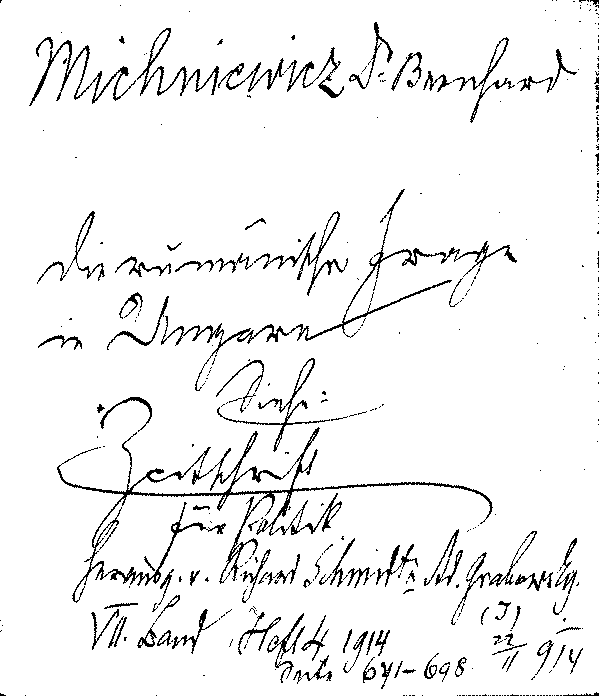 Michniewicz Dr. Bernhard
Die rumänische Frage
in Ungarn
Siehe:
Zeitschrift
für Politik
Herausg. v. Richard Schmidt u. Ad. Grabowsky.
VII. Band Heft 4 1914
Seite 671-698
(J)
22/11 914